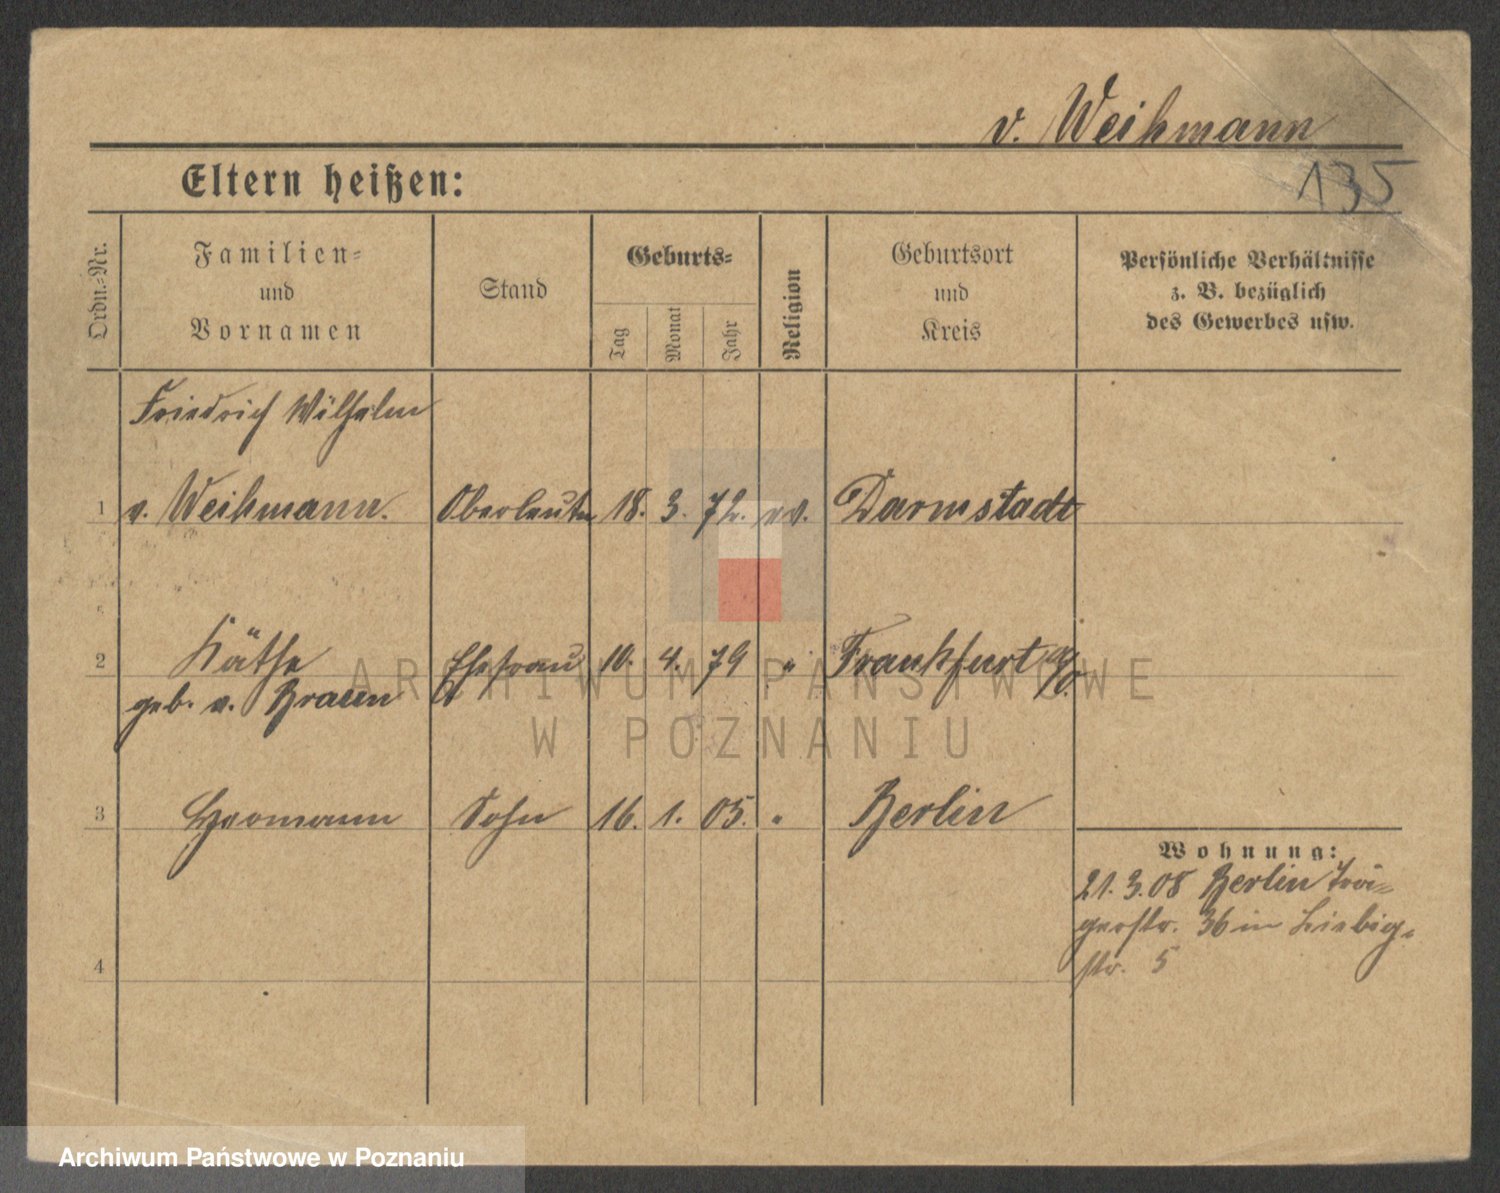 v. Weihmann
135
Eltern heißen:
Ordn.-Nr.
Familien-
und
Vornamen
Stand
Geburts-
Tag
Monat
Jahr
Religion
Geburtsort
und
Kreis
Persönliche Verhältnisse
z. B. bezüglich
des Gewerbes usw.
Friedrich Wilhelm
1 v. Weihmann. Oberleutn 18. 3. 72. ev. Darmstadt
2 Käthe Ehefrau 10. 4. 79 " Frankfurt a/O.
geb. v. Braun
3 Hermann Sohn 16. 1. 05. " Berlin
Wohnung:
21.3.08 Berlin
36 in Liebig-
str. 5
4
ARCHIWUM PAŃSTWOWE
W POZNANIU
Archiwum Państwowe w Poznaniu